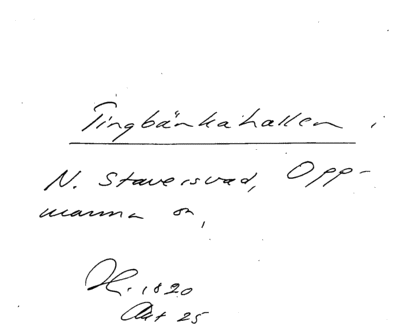 Tingbänkahallen i
N. Staversvad, Opp-
manna sn,
H. 1820
Akt 25